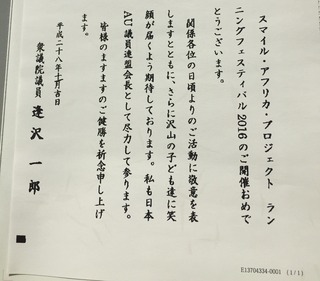 スマイル・アフリカ・プロジェクト　ラン
ニングフェスティバル2016のご開催おめで
とうございます。
関係各位の日頃よりのご活動に敬意を表
しますとともに、さらに沢山の子ども達に笑
顔が届くよう期待しております。私も日本
AU議員連盟会長として尽力して参ります。
皆様のますますのご健勝を祈念申し上げ
ます。
平成二十八年七月吉日
衆議院議員　逢沢　一郎
E13704334-0001 (1/1)